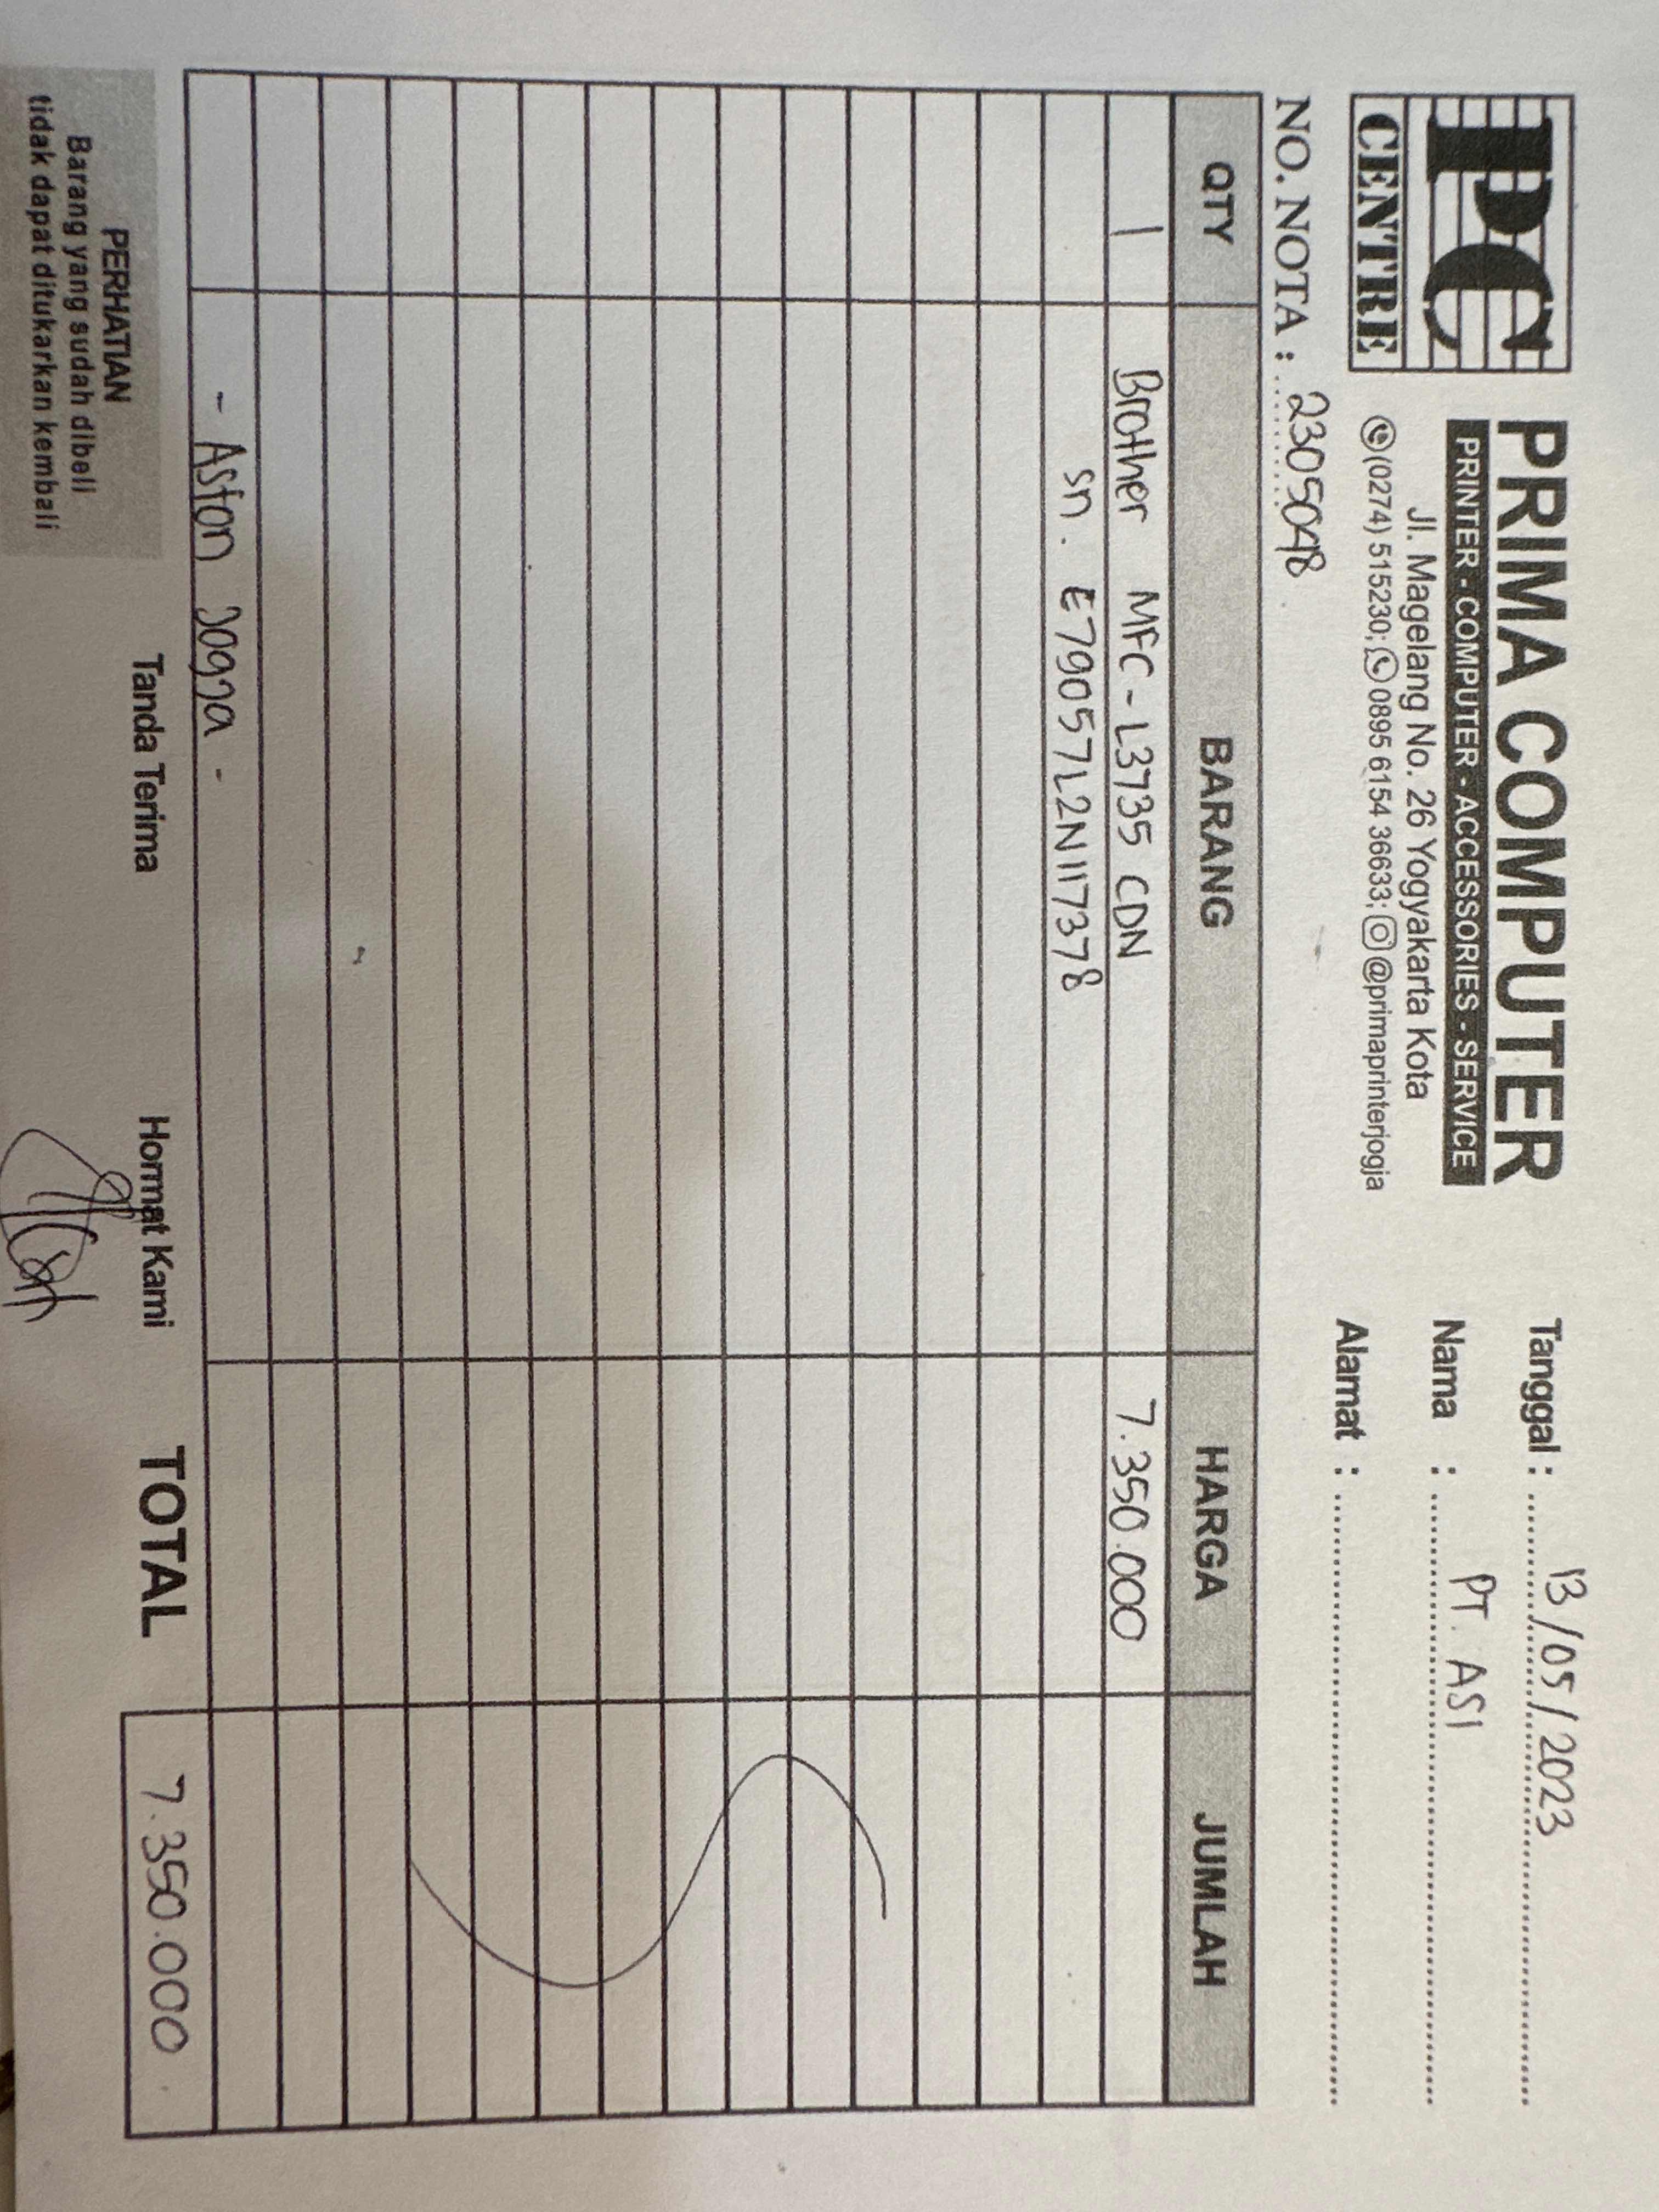 PC
CENTRE
PRIMA COMPUTER
PRINTER - COMPUTER - ACCESSORIES - SERVICE
Jl. Magelang No. 26 Yogyakarta Kota
(0274) 515230; 0895 6154 36633; @primaprinterjogja
Tanggal : 13/05/2023
Nama : PT. ASI
Alamat :
NO. NOTA : 2305048
QTY BARANG HARGA JUMLAH
1 Brother MFC-L3735 CDN 7.350.000
sn. E79057L2N117378
- Aston Jogja -
PERHATIAN
Barang yang sudah dibeli
tidak dapat ditukarkan kembali
Tanda Terima
Hormat Kami
TOTAL 7.350.000